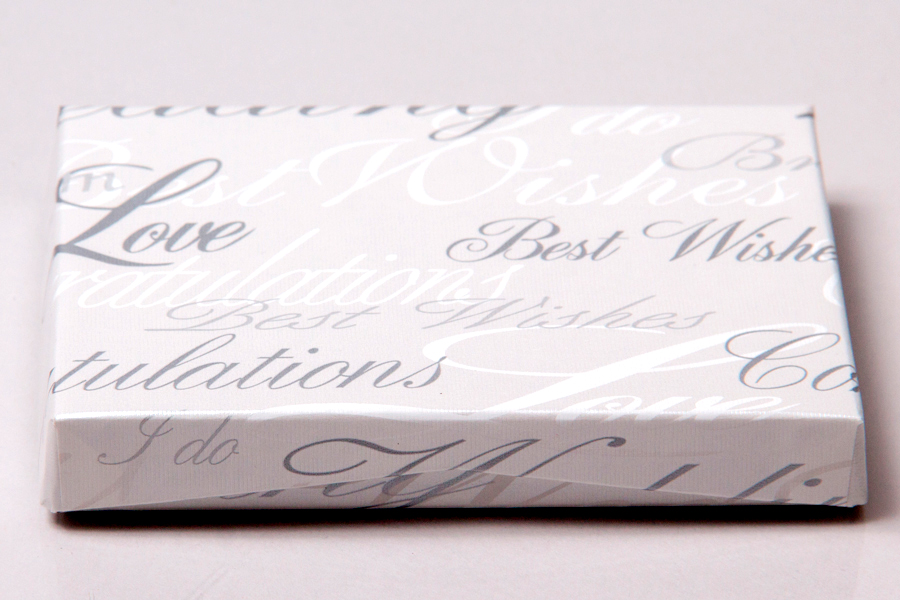 I do
Best Wishes
Br
m
Love
Best Wishe
ratulations
Best Wishes
tulations
Love
Co
I do